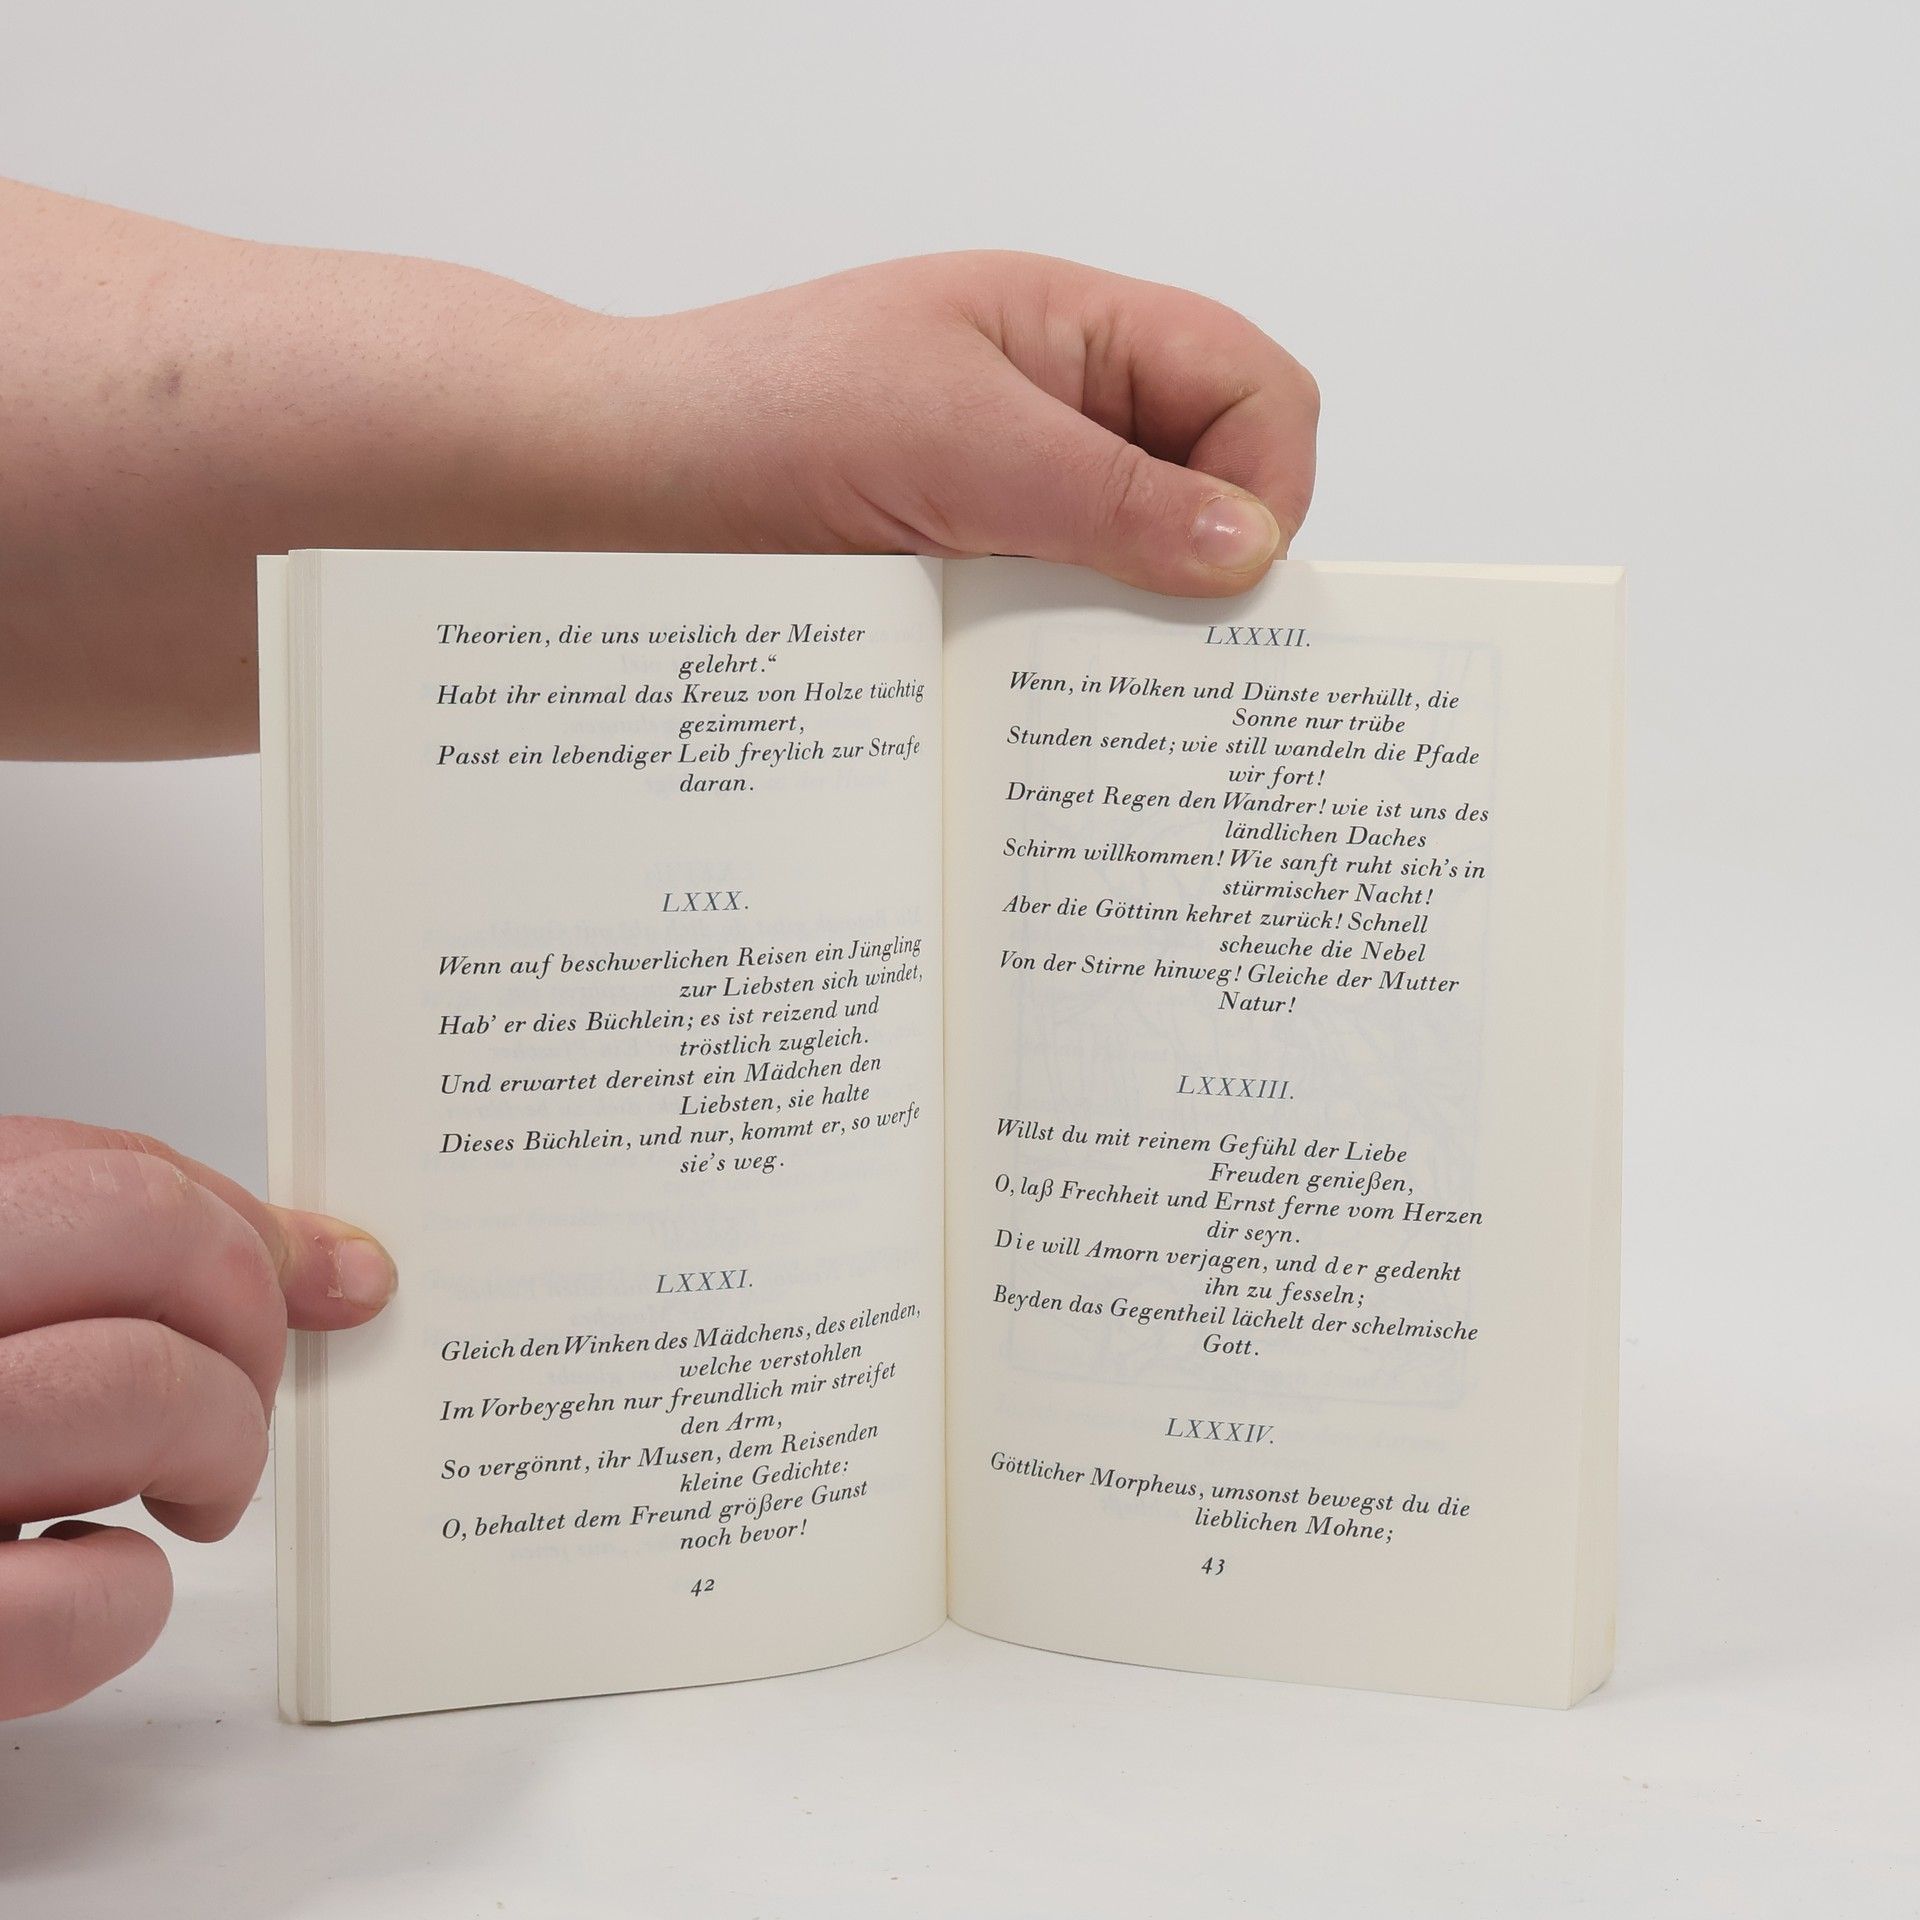 Theorien, die uns weislich der Meister
gelehrt.“
Habt ihr einmal das Kreuz von Holze tüchtig
gezimmert,
Passt ein lebendiger Leib freylich zur Strafe
daran.
LXXX.
Wenn auf beschwerlichen Reisen ein Jüngling
zur Liebsten sich windet,
Hab’ er dies Büchlein; es ist reizend und
tröstlich zugleich.
Und erwartet dereinst ein Mädchen den
Liebsten, sie halte
Dieses Büchlein, und nur, kommt er, so werfe
sie’s weg.
LXXXI.
Gleich den Winken des Mädchens, des eilenden,
welche verstohlen
Im Vorbeygehn nur freundlich mir streifet
den Arm,
So vergönnt, ihr Musen, dem Reisenden
kleine Gedichte:
O, behaltet dem Freund größere Gunst
noch bevor!
42
LXXXII.
Wenn, in Wolken und Dünste verhüllt, die
Sonne nur trübe
Stunden sendet; wie still wandeln die Pfade
wir fort!
Dränget Regen den Wandrer! wie ist uns des
ländlichen Daches
Schirm willkommen! Wie sanft ruht sich’s in
stürmischer Nacht!
Aber die Göttinn kehret zurück! Schnell
scheuche die Nebel
Von der Stirne hinweg! Gleiche der Mutter
Natur!
LXXXIII.
Willst du mit reinem Gefühl der Liebe
Freuden genießen,
O, laß Frechheit und Ernst ferne vom Herzen
dir seyn.
Die will Amorn verjagen, und der gedenkt
ihn zu fesseln;
Beyden das Gegentheil lächelt der schelmische
Gott.
LXXXIV.
Göttlicher Morpheus, umsonst bewegst du die
lieblichen Mohne;
43